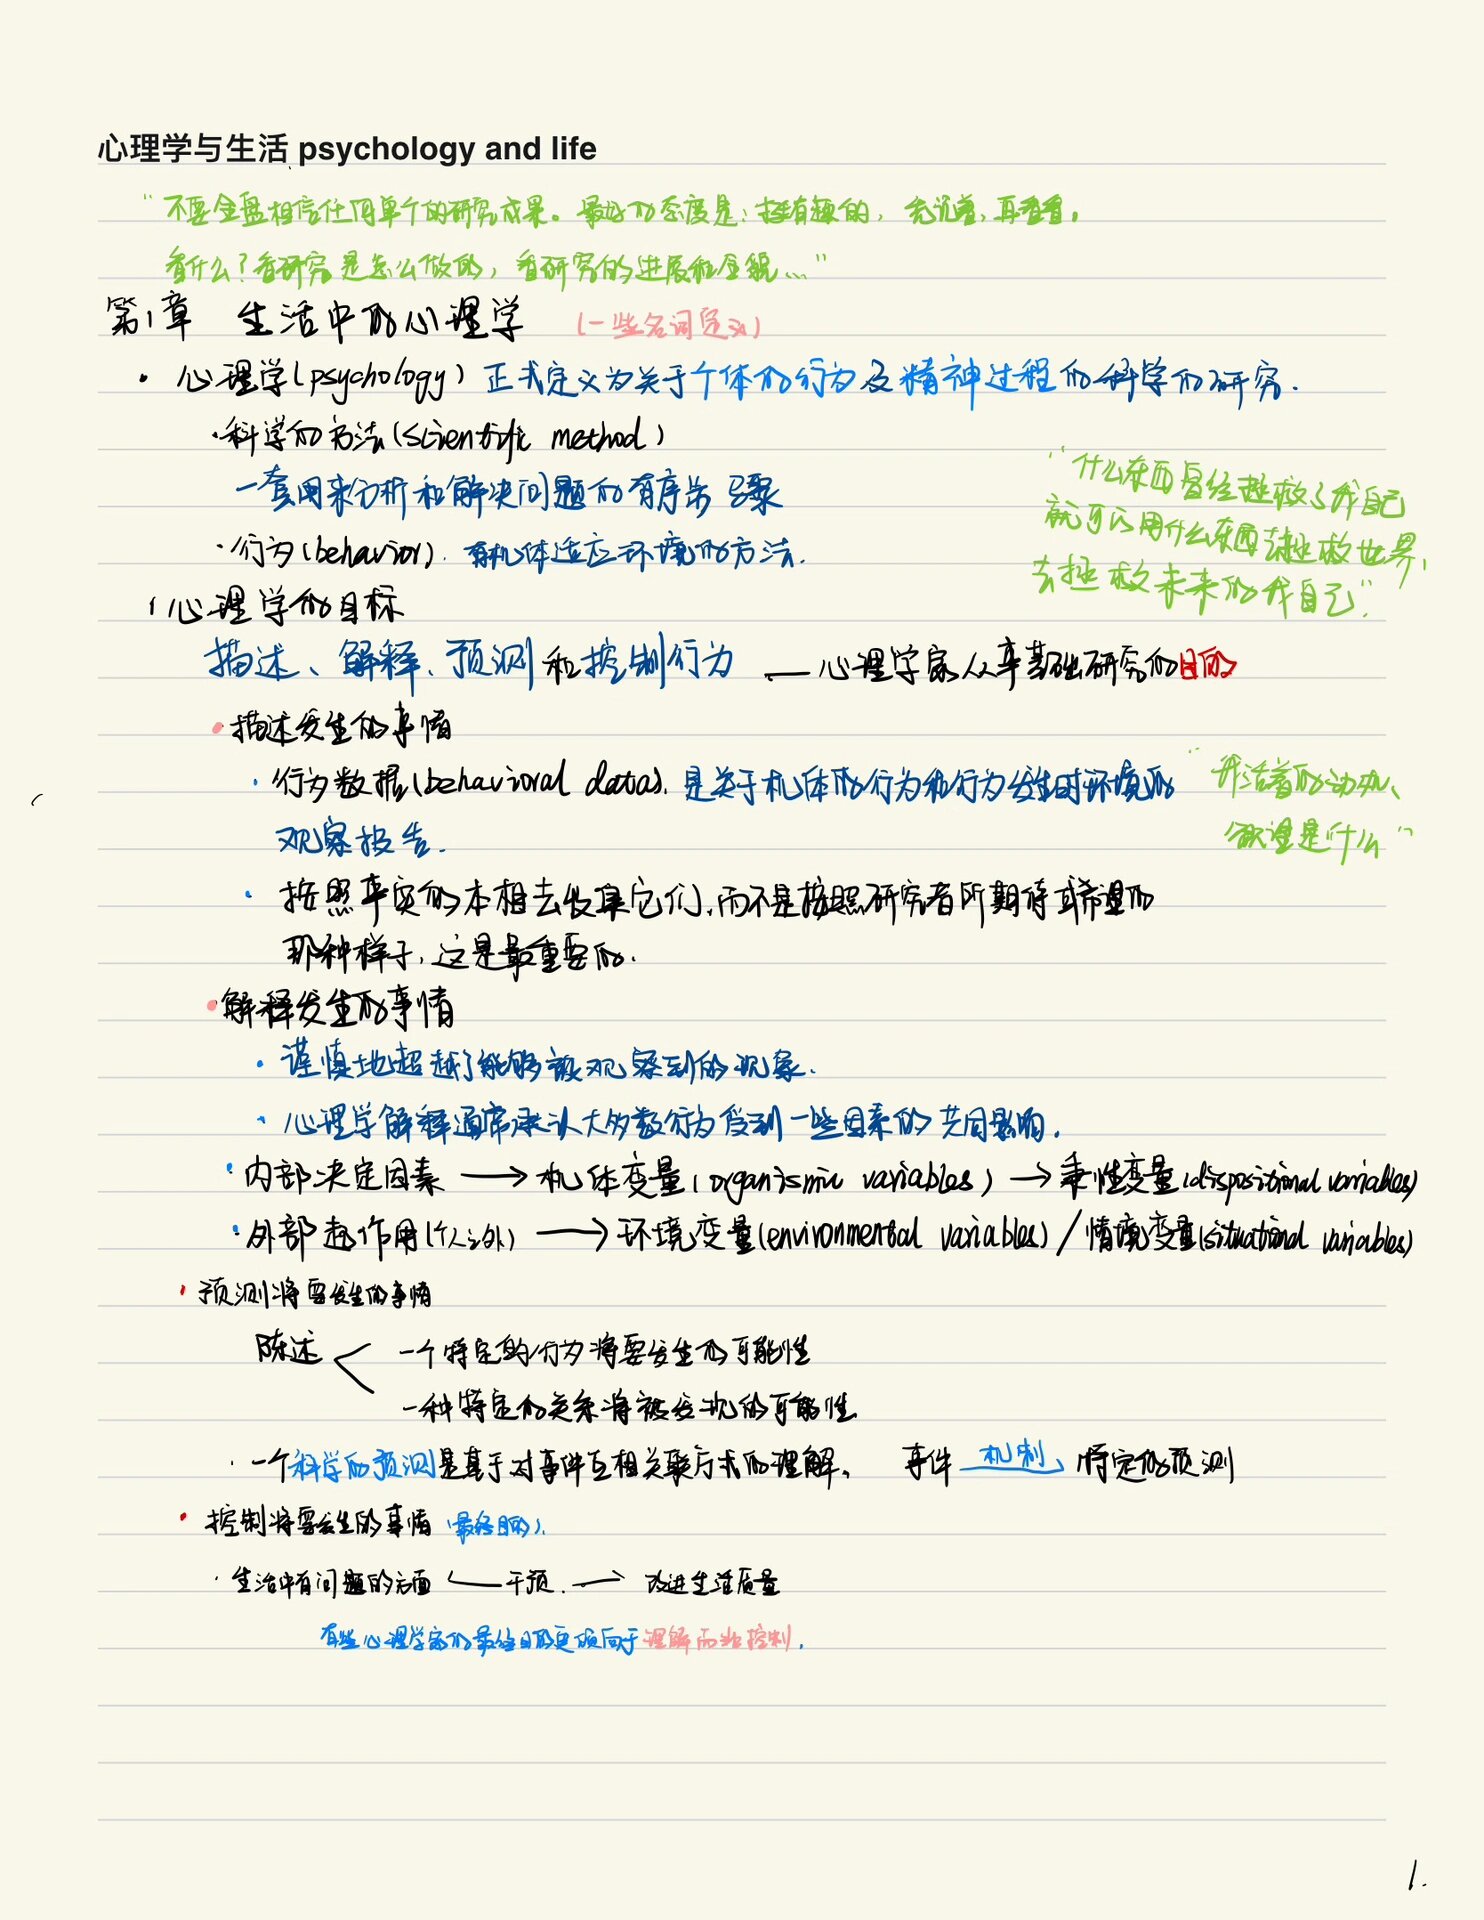 心理学与生活 psychology and life
“不要全盘相信任何单个的研究成果。最好的态度是：挺有趣的，先沉着，再看看。
看什么？看研究是怎么做的，看研究的进展和全貌…”
第1章 生活中的心理学 (一些名词定义)
·心理学(psychology) 正式定义为关于个体的行为及精神过程的科学的研究.
·科学的方法(scientific method)
一套用来分析和解决问题的有序步骤
“什么东西曾经拯救了我自己
就可以用什么东西去拯救世界,
·行为(behavior). 有机体适应环境的方法.
去拯救未来的我自己”.
·心理学的目标
描述、解释、预测和控制行为 — 心理学家从事基础研究的目的
·描述发生的事情
·行为数据(behavioral data). 是关于机体的行为和行为发生时环境的
“我活着的动力、
观察报告.
欲望是什么”
·按照事实的本相去收集它们,而不是按照研究者所期待或希望的
那种样子,这是最重要的.
·解释发生的事情
·谨慎地超越了能够被观察到的现象.
·心理学解释通常承认大多数行为受到一些因素的共同影响.
·内部决定因素 → 机体变量(organismic variables) → 秉性变量(dispositional variables)
·外部起作用(个人之外) → 环境变量(environmental variables) / 情境变量(situational variables)
·预测将要发生的事情
陈述 < 一个特定的行为将要发生的可能性
一种特定的关系将被发现的可能性
·一个科学的预测是基于对事件互相关联方式的理解、 事件 机制、特定的预测
·控制将要发生的事情 (最终目的).
·生活中有问题的方面 ← 干预. → 改进生活质量
有些心理学家的最终目的更倾向于理解而非控制.
1.